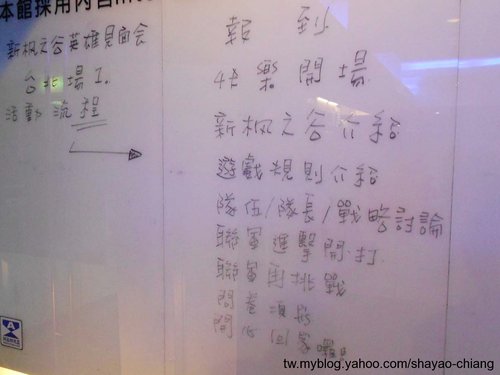 本館採用內含
新枫之谷英雄見面会
台北場 I.
活動流程
報到
快樂開場
新枫之谷介紹
遊戲規則介紹
隊伍/隊長/戰略討論
聯軍進擊開打
聯軍再挑戰
問卷填寫
開心回家囉!!
tw.myblog.yahoo.com/shayao-chiang